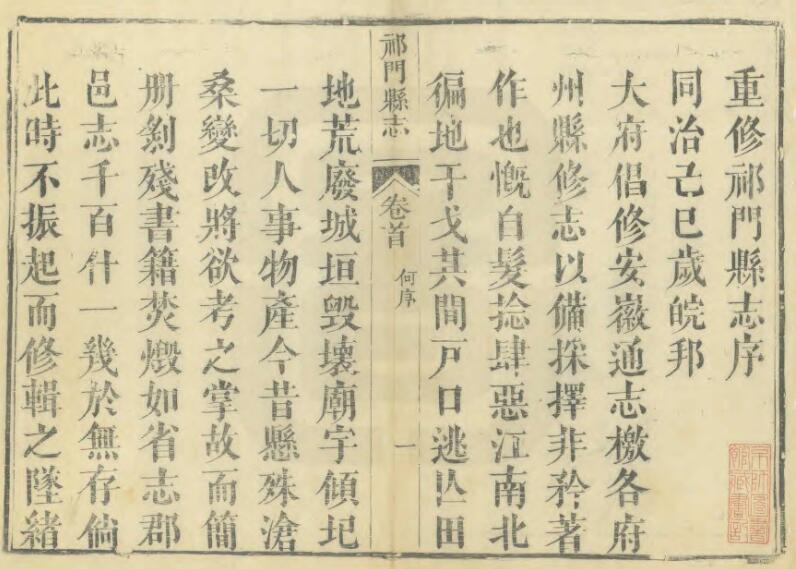 重修祁門縣志序
同治己巳歲皖邦
大府倡修安徽通志檄各府
州縣修志以備採擇非矜著
作也慨自髮捻肆惡江南北
徧地干戈其間戸口逃亾田
祁門縣志 卷首 何序 一
地荒廢城垣毀壞廟宇傾圮
一切人事物產今昔懸殊滄
桑變改將欲考之掌故而簡
册剝殘書籍焚燬如省志郡
邑志千百什一幾於無存倘
此時不振起而修輯之墜緒